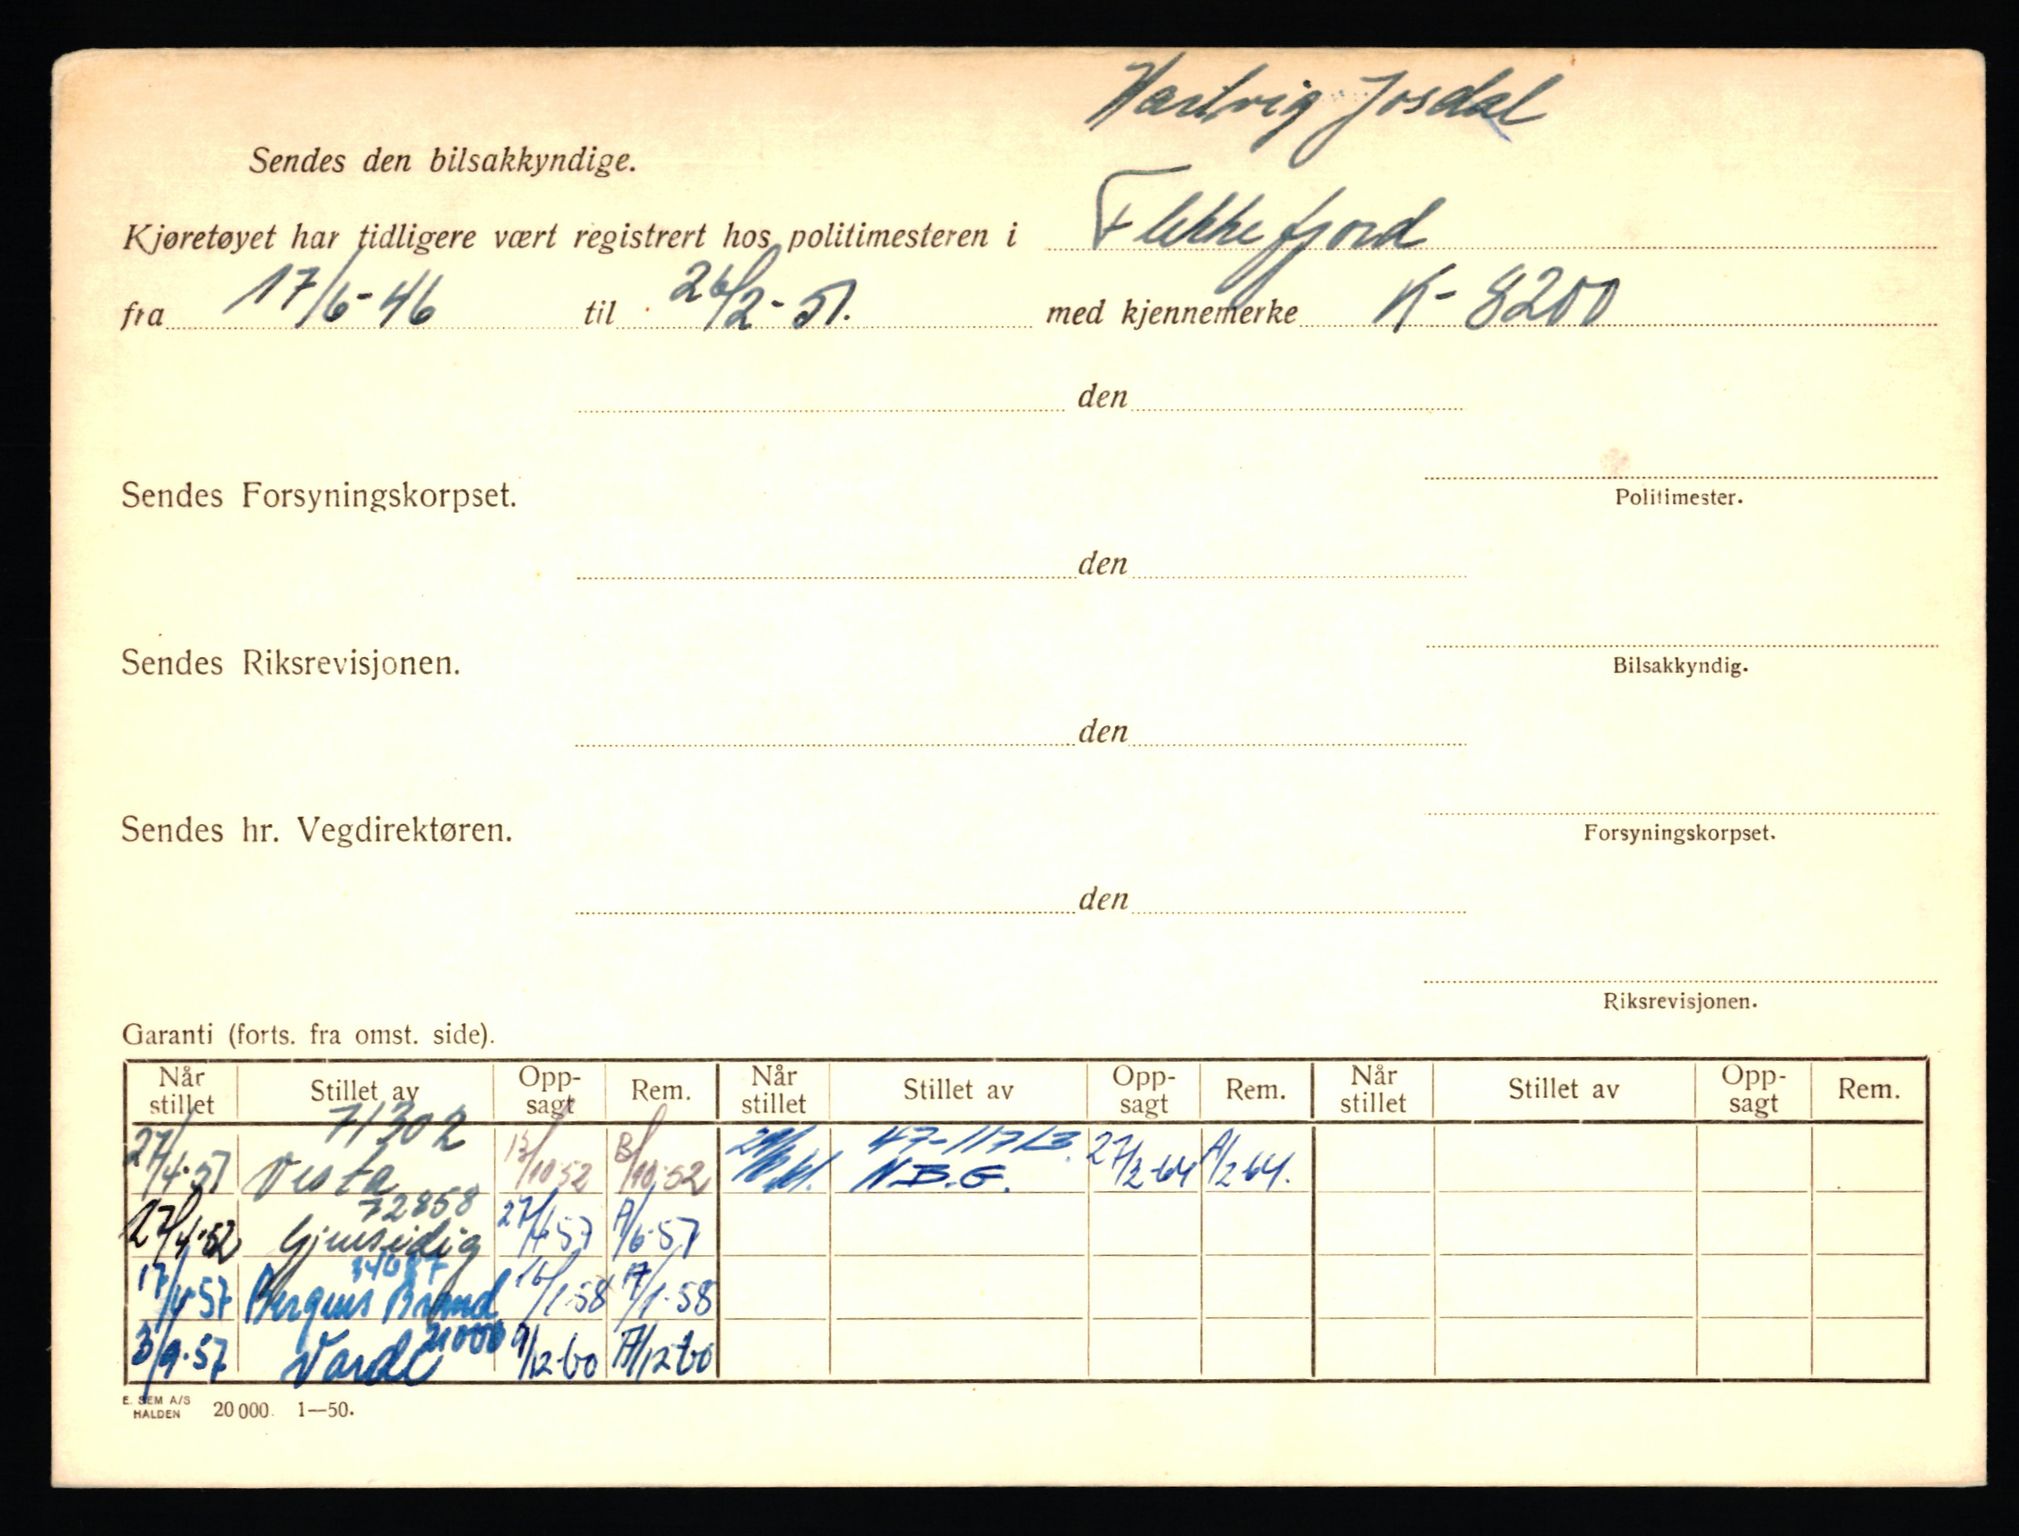 Hartvig Josdal
Sendes den bilsakkyndige.
Kjøretøyet har tidligere vært registrert hos politimesteren i Flekkefjord
fra 17/6-46 til 26/2-51. med kjennemerke K-8200
den
Politimester.
Sendes Forsyningskorpset.
den
Bilsakkyndig.
Sendes Riksrevisjonen.
den
Forsyningskorpset.
Sendes hr. Vegdirektøren.
den
Riksrevisjonen.
Garanti (forts. fra omst. side).
Når stillet Stillet av Opp-sagt Rem. Når stillet Stillet av Opp-sagt Rem. Når stillet Stillet av Opp-sagt Rem.
71302 47-11713.
27/4-51 Vesta 13/10 52 B/10-52 N.B.G. 27/2-64 A/2-64.
72858
17/4-52 Gjensidig 27/4-57 A/6-57
17/4-57 Bergens Brand 16/1-58 17/1-58
21000
3/9-57 Varde 9/12-60 A/12-60
E. SEM A/S
HALDEN 20 000. 1—50.